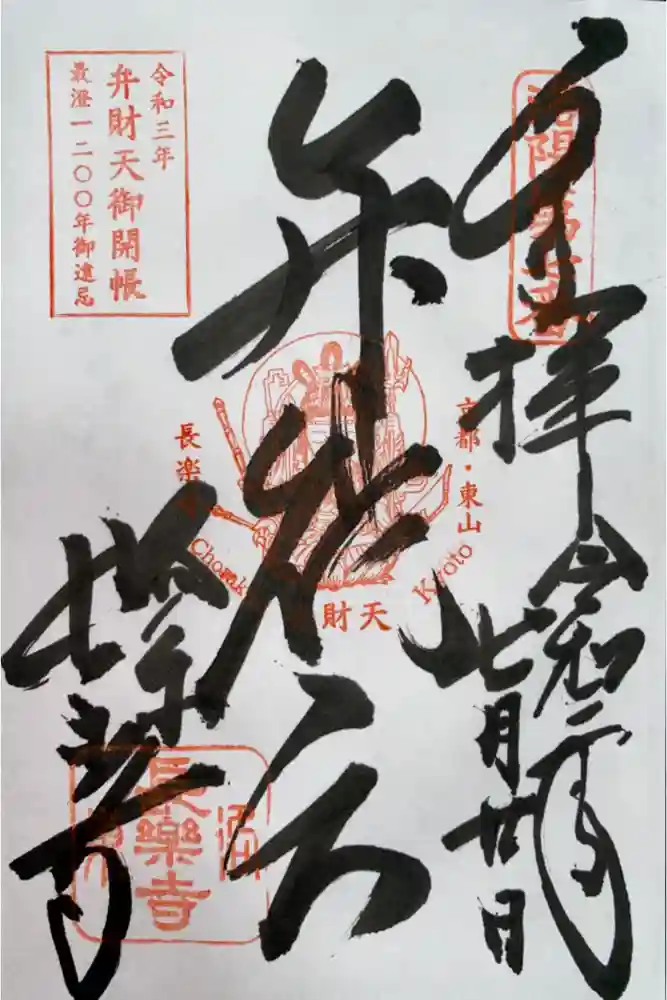 奉拝
令和三年
七月廿日
洛陽第七番
弁財天
長楽寺
令和三年
弁財天御開帳
最澄一二〇〇年御遠忌
京都・東山
長楽
Kyoto
財天
長樂寺